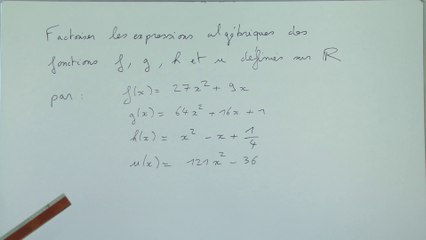 Factoriser les expressions algébriques des
fonctions f, g, h et u définies sur ℝ
par : f(x) = 27x² + 9x
g(x) = 64x² + 16x + 1
h(x) = x² - x + 1/4
u(x) = 121x² - 36